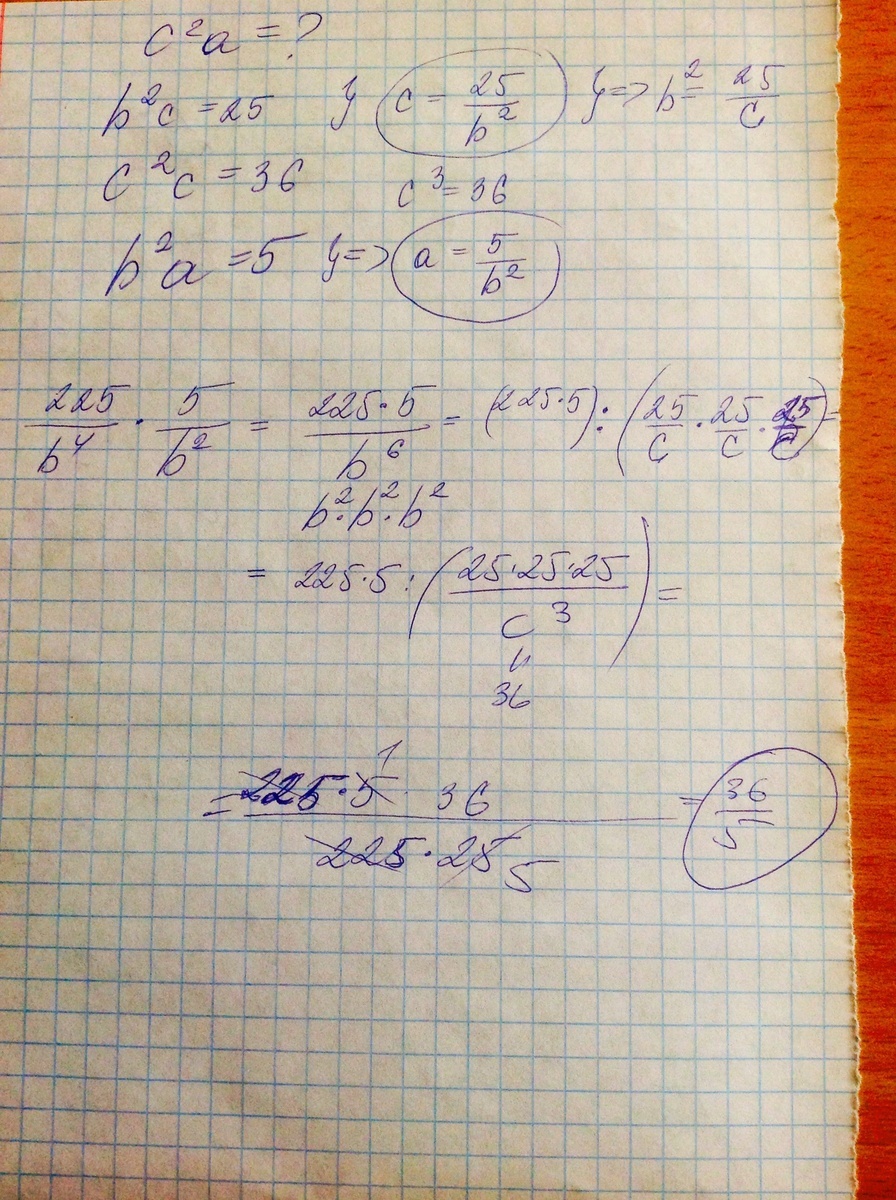 c²a = ?
b²c = 25 y c = 25/b² y=> b² = 25/c
c²c = 36 c³ = 36
b²a = 5 y=> a = 5/b²
225/b⁴ · 5/b² = 225·5/b⁶ = (225·5) : (25/c · 25/c · 25/c) =
b²·b²·b²
= 225·5 : (25·25·25/c³) =
36
1
= 225·5 · 36 / 225·25 = 36/5
5